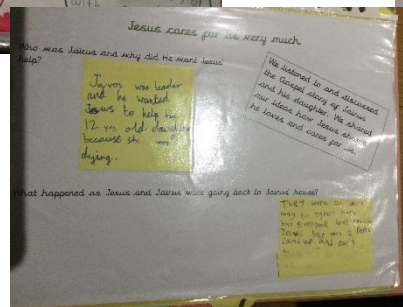 (with
Jesus cares for us very much
Who was Jairus and why did He want Jesus'
help?
Jayros was leader
and he wanted
Jesus to help his
12 yrs old
because she was
dying.
We listened to and discussed
the Gospel story of Jairus
and his daughter. We shared
our ideas how Jesus
he loves and cares for us.
What happened as Jesus and Jairus were going back to Jairus' house?
They were on
way to
Jesus
came up and said